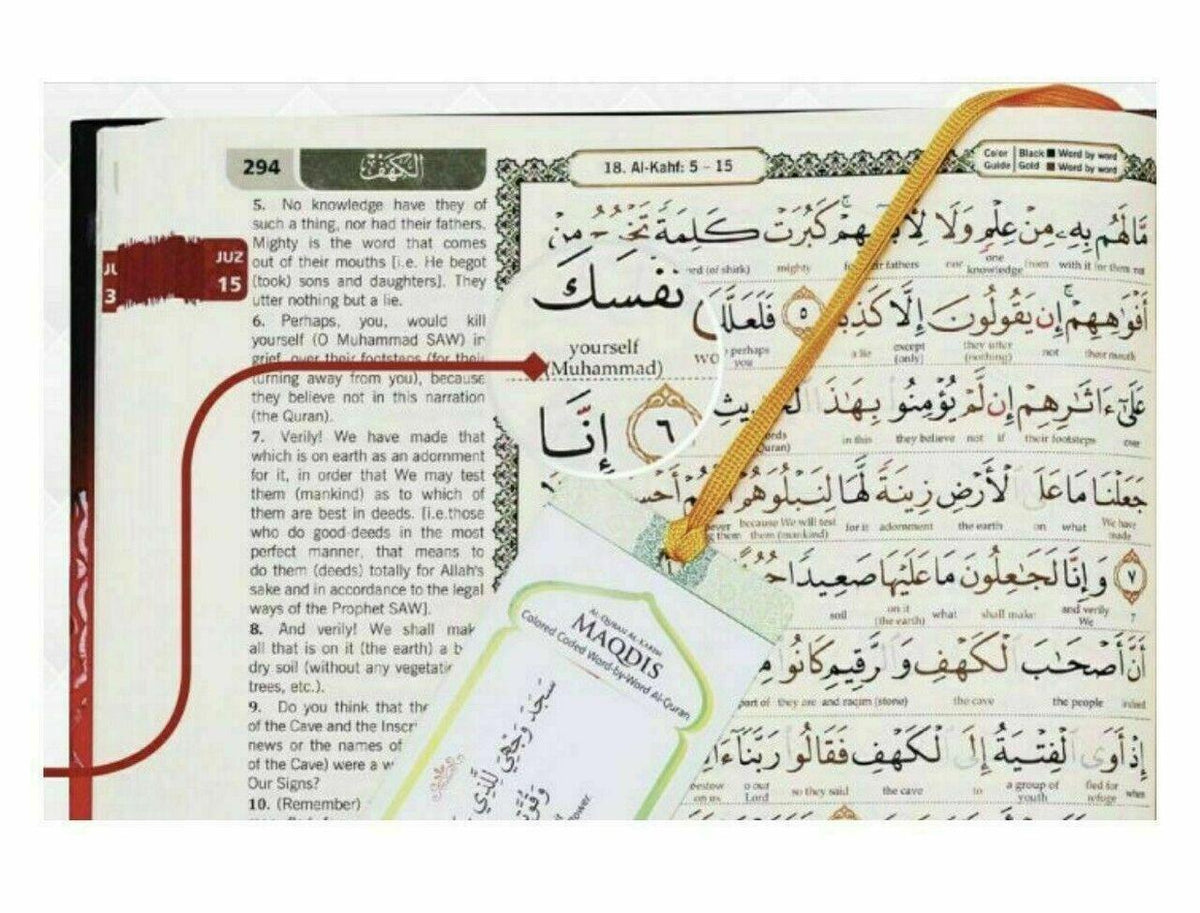 294
الكهف
18. Al-Kahf: 5 - 15
Color Guide
Black Word by word
Gold Word by word
JUZ
15
5. No knowledge have they of
such a thing, nor had their fathers.
Mighty is the word that comes
out of their mouths [i.e. He begot
(took) sons and daughters]. They
utter nothing but a lie.
6. Perhaps, you, would kill
yourself (O Muhammad SAW) in
grief, over their footsteps (for their
turning away from you), because
they believe not in this narration
(the Quran).
7. Verily! We have made that
which is on earth as an adornment
for it, in order that We may test
them (mankind) as to which of
them are best in deeds. [i.e.those
who do good deeds in the most
perfect manner, that means to
do them (deeds) totally for Allah's
sake and in accordance to the legal
ways of the Prophet SAW].
8. And verily! We shall mak
all that is on it (the earth) a b
dry soil (without any vegetati
trees, etc.).
9. Do you think that the
of the Cave and the Inscr
news or the names of
of the Cave) were a w
Our Signs?
10. (Remember)
مَّا لَهُم بِهِ مِنْ عِلْمٍ وَلَا كَبُرَتْ كَلِمَةً تَخْرُجُ مِنْ
(of shirk) mighty fathers nor one knowledge from with it for them
أَفْوَاهِهِمْ إِن يَقُولُونَ إِلَّا ٥ فَلَعَلَّكَ
perhaps you a lie except (only) they utter (nothing) not their mouth
نَفْسَكَ
yourself
(Muhammad)
عَلَىٰ ءَاثَارِهِمْ إِن لَّمْ يُؤْمِنُوا بِهَٰذَا
in this they believe not if their footsteps over
٦ إِنَّا
جَعَلْنَا مَا عَلَى الْأَرْضِ زِينَةً لَّهَا لِنَبْلُوَهُمْ
because We will test them (mankind) for it adornment the earth on what We have made
٧ وَإِنَّا لَجَاعِلُونَ مَا عَلَيْهَا صَعِيدًا
soil on it (the earth) what shall make and verily We 7
أَنَّ أَصْحَابَ الْكَهْفِ وَالرَّقِيمِ كَانُوا
part of they are and raqim (stone) the cave the people indeed
إِذْ أَوَى الْفِتْيَةُ إِلَى الْكَهْفِ فَقَالُوا رَبَّنَا
bestow on us Lord so they said the cave to a group of youth fled for refuge when
AL-QURAN AL-KARIM
MAQDIS
Colored Coded Word-by-Word Al-Quran
سَجَدَ وَجْهِيَ لِلَّذِي